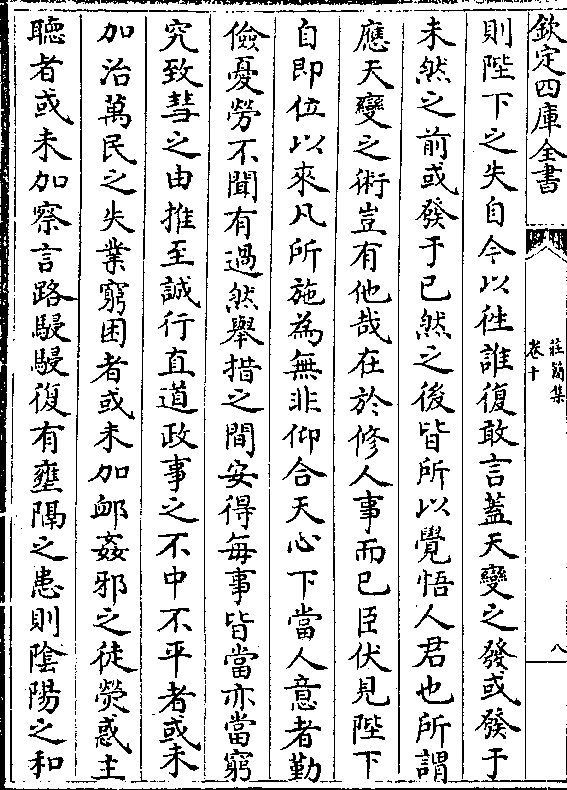 欽定四庫全書
莊簡集
卷十
八
則陛下之失自今以徃誰復敢言蓋天變之發或發于
未然之前或發于已然之後皆所以覺悟人君也所謂
應天變之術豈有他哉在於修人事而已臣伏見陛下
自即位以來凡所施為無非仰合天心下當人意者勤
儉憂勞不聞有過然舉措之間安得每事皆當亦當窮
究致彗之由推至誠行直道政事之不中不平者或未
加治萬民之失業窮困者或未加䘏姦邪之徒熒惑主
聽者或未加察言路駸駸復有壅隔之患則陰陽之和